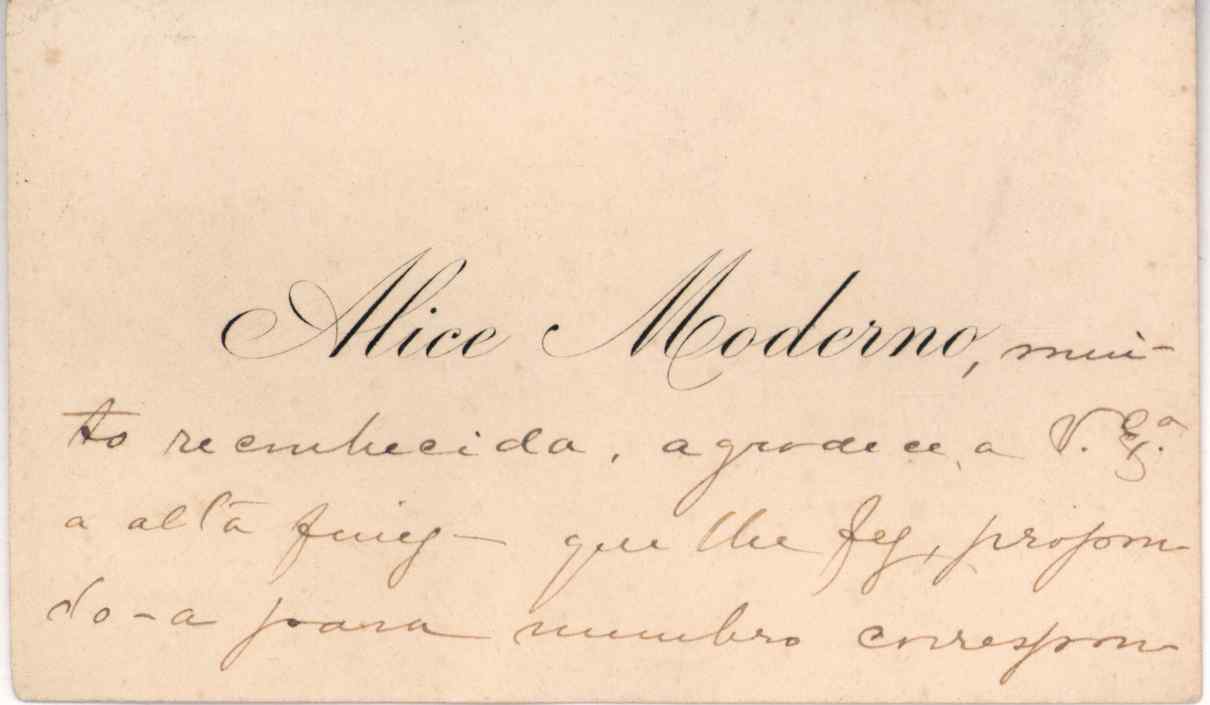 Alice Moderno, mui-
to reconhecida, agradece, a V. Ex.ª
a alta finez- que lhe fez, propon-
do-a para membro correspon-